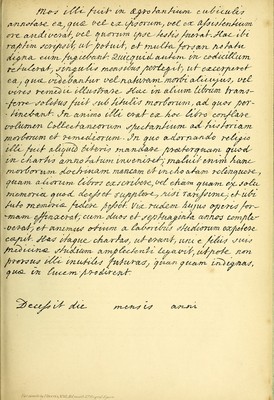 Mos ille fuit in aegrotantium cubiculis
annotare ea, quae vel ex ipsorum, vel ex assistentium
ore audiverat, vel quorum ipse testis fuerat. Haec ibi
raptim scripsit, ut potuit, et multa forsan notatu
digna eum fugiebant. Quicquid autem in codicillum
retulerat, singulis mensibus perlegit, ut exciperet
ea, quae videbantur vel naturam morbi alicujus, vel
vires remedii illustrare. Haec in alium librum trans-
ferre solitus fuit sub titulis morborum, ad quos per-
tinebant. In animo illi erat ex hoc libro conflare
volumen Collectaneorum spectantium ad historiam
morborum et remediorum. In quo adornando religio
illi fuit aliquid literis mandare praeterquam quod
in chartis annotatum inveniret; maluit enim hanc
morborum doctrinam mancam et inchoatam relinquere,
quam aliorum libros exscribere, vel etiam quam ex sola
memoria quod deesset supplere, nisi rarissime, et ubi
tuto memoriae fidere posset. Vix rudem hujus operis for-
mam effinxerat, cum duos et septuaginta annos comple-
verat, et animus otium a laboribus studiorum expetere
caepit. Has itaque chartas, ut erant, uni e filiis suis
medicinae studium amplectenti legavit, utpote non
prorsus illi inutiles futuras, quanquam indignas,
quae in lucem prodirent.
Decessit die mensis anni